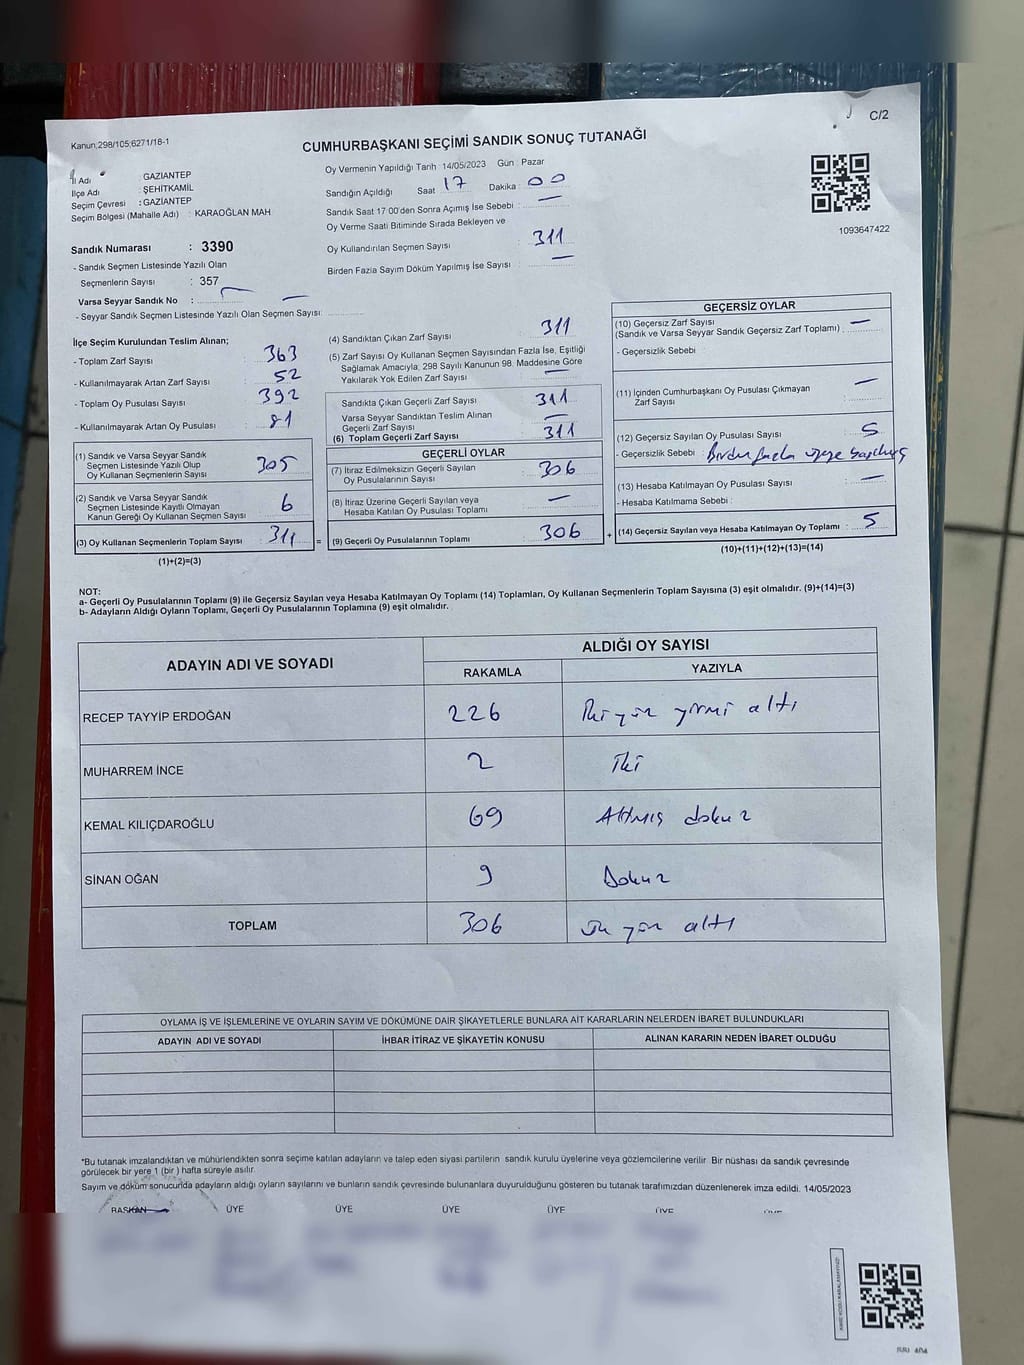 Kanun;298/105;6271/18-1
C/2
CUMHURBAŞKANI SEÇİMİ SANDIK SONUÇ TUTANAĞI
İl Adı GAZİANTEP
İlçe Adı : ŞEHİTKAMİL
Seçim Çevresi : GAZİANTEP
Seçim Bölgesi (Mahalle Adı) : KARAOĞLAN MAH
Sandık Numarası : 3390
- Sandık Seçmen Listesinde Yazılı Olan
Seçmenlerin Sayısı : 357
Varsa Seyyar Sandık No : —
- Seyyar Sandık Seçmen Listesinde Yazılı Olan Seçmen Sayısı:
Oy Vermenin Yapıldığı Tarih 14/05/2023 Gün : Pazar
Sandığın Açıldığı Saat 17 Dakika : 00
Sandık Saat 17 00'den Sonra Açımış İse Sebebi : —
Oy Verme Saati Bitiminde Sırada Bekleyen ve
Oy Kullandırılan Seçmen Sayısı : 311
Birden Fazla Sayım Döküm Yapılmış İse Sayısı : —
1093647422
İlçe Seçim Kurulundan Teslim Alınan;
- Toplam Zarf Sayısı : 363
- Kullanılmayarak Artan Zarf Sayısı : 52
- Toplam Oy Pusulası Sayısı : 392
- Kullanılmayarak Artan Oy Pusulası : 81
(1) Sandık ve Varsa Seyyar Sandık
Seçmen Listesinde Yazılı Olup
Oy Kullanan Seçmenlerin Sayısı 305
(2) Sandık ve Varsa Seyyar Sandık
Seçmen Listesinde Kayıtlı Olmayan
Kanun Gereği Oy Kullanan Seçmen Sayısı 6
(3) Oy Kullanan Seçmenlerin Toplam Sayısı : 311 =
(1)+(2)=(3)
(4) Sandıktan Çıkan Zarf Sayısı 311
(5) Zarf Sayısı Oy Kullanan Seçmen Sayısından Fazla İse, Eşitliği
Sağlamak Amacıyla, 298 Sayılı Kanunun 98. Maddesine Göre
Yakılarak Yok Edilen Zarf Sayısı —
Sandıkta Çıkan Geçerli Zarf Sayısı 311
Varsa Seyyar Sandıktan Teslim Alınan
Geçerli Zarf Sayısı —
(6) Toplam Geçerli Zarf Sayısı : 311
GEÇERLİ OYLAR
(7) İtiraz Edilmeksizin Geçerli Sayılan
Oy Pusulalarının Sayısı : 306
(8) İtiraz Üzerine Geçerli Sayılan veya
Hesaba Katılan Oy Pusulası Toplamı —
(9) Geçerli Oy Pusulalarının Toplamı : 306 +
GEÇERSİZ OYLAR
(10) Geçersiz Zarf Sayısı
(Sandık ve Varsa Seyyar Sandık Geçersiz Zarf Toplamı) : —
- Geçersizlik Sebebi
(11) İçinden Cumhurbaşkanı Oy Pusulası Çıkmayan
Zarf Sayısı : —
(12) Geçersiz Sayılan Oy Pusulası Sayısı : 5
- Geçersizlik Sebebi : Birden fazla
(13) Hesaba Katılmayan Oy Pusulası Sayısı : —
- Hesaba Katılmama Sebebi :
(14) Geçersiz Sayılan veya Hesaba Katılmayan Oy Toplamı : 5
(10)+(11)+(12)+(13)=(14)
NOT:
a- Geçerli Oy Pusulalarının Toplamı (9) ile Geçersiz Sayılan veya Hesaba Katılmayan Oy Toplamı (14) Toplamları, Oy Kullanan Seçmenlerin Toplam Sayısına (3) eşit olmalıdır. (9)+(14)=(3)
b- Adayların Aldığı Oyların Toplamı, Geçerli Oy Pusulalarının Toplamına (9) eşit olmalıdır.
ADAYIN ADI VE SOYADI ALDIĞI OY SAYISI
RAKAMLA YAZIYLA
RECEP TAYYİP ERDOĞAN 226 İkiyüz yirmi altı
MUHARREM İNCE 2 iki
KEMAL KILIÇDAROĞLU 69 Altmış dokuz
SİNAN OĞAN 9 Dokuz
TOPLAM 306 üç yüz altı
OYLAMA İŞ VE İŞLEMLERİNE VE OYLARIN SAYIM VE DÖKÜMÜNE DAİR ŞİKAYETLERLE BUNLARA AİT KARARLARIN NELERDEN İBARET BULUNDUKLARI
ADAYIN ADI VE SOYADI İHBAR İTİRAZ VE ŞİKAYETİN KONUSU ALINAN KARARIN NEDEN İBARET OLDUĞU
*Bu tutanak imzalandıktan ve mühürlendikten sonra seçime katılan adayların ve talep eden siyasi partilerin sandık kurulu üyelerine veya gözlemcilerine verilir. Bir nüshası da sandık çevresinde
görülecek bir yere 1 (bir) hafta süreyle asılır.
Sayım ve döküm sonucunda adayların aldığı oyların sayılarını ve bunların sandık çevresinde bulunanlara duyurulduğunu gösteren bu tutanak tarafımızdan düzenlenerek imza edildi. 14/05/2023
BAŞKAN ÜYE ÜYE ÜYE ÜYE ÜYE ÜYE